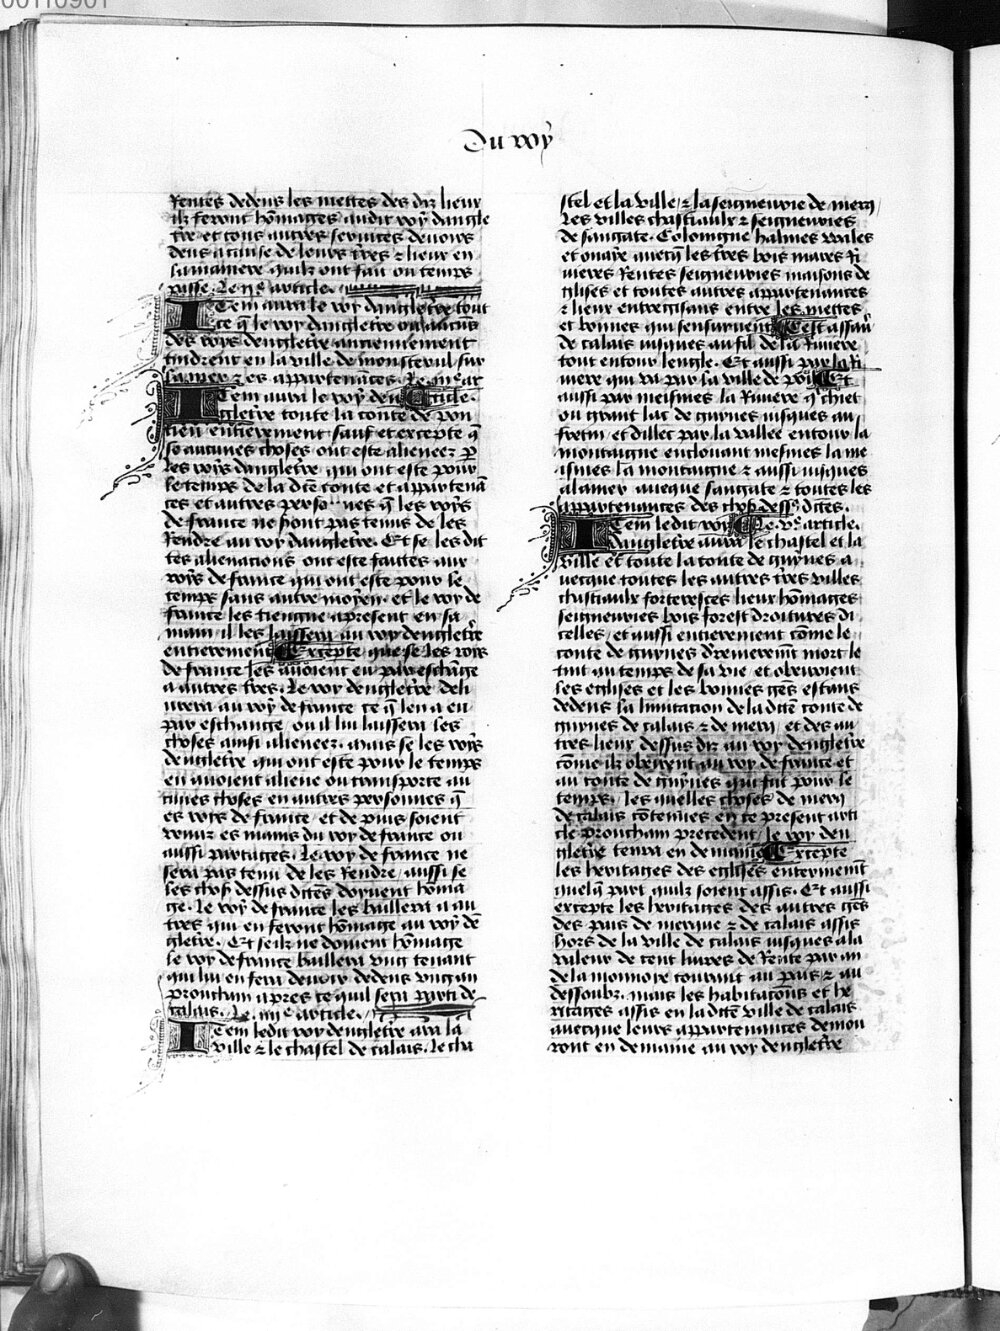 00110901
Du roy
Rentes dedens les mettes des diz lieux
ilz feront hõmages audit roy dangle
t̃re et tous autres seruices deuoirs
deus a cause de leurs t̃res ⁊ lieux en
la maniere quilz ont fait ou temps
passe. Le ijᵉ article.
Item aura le roy dangleterre tout
ce q̃ le roy dangleterre ou aucuns
des roys dengletr̃e anciennement
tindrent en la ville de monstereul sur
la mer ⁊ es appartenãces. Le iijᵉ ar
Item aura le roy den ticle.
gletr̃e toute la conte de pon
tieu entierement sauf et excepte q̃
se aucunes choses ont este alienees p̲
les roys dangletr̃e qui ont este pour
le temps de la dc̃e conte et appartenã
ces et autres personnes q̃ les roys
de france ne sont pas tenus de les
Rendre au roy dangletr̃e. Et se les dit
tes alienacions ont este faittes aux
roys de france qui ont este pour le
temps sans autre moyen. et le roy de
france les tiengne apresent en sa
main il les laissera au roy dengletr̃e
entierement Excepte que se les roys
de france les auoient eu par eschãge
a autres t̃res. Le roy dengletr̃e deli
urera au roy de france ce q̃ len a eu
par eschange ou il lui laissera les
choses ainsi alienees. mais se les roys
dengletr̃e qui ont este pour le temps
en auoient aliene ou transporte au
cunes choses en autres personnes q̃
es roys de france et de puis soient
venuz es mains du roy de france ou
aussi partages. Le roy de france ne
sera pas tenu de les Rendre / aussi se
les chos̃ dessus dc̃tes doyuent hõma
ge. Le roy de france les baillera a au
tres qui en feront hõmage au roy dẽ
gletr̃e. Et se ilz ne doiuent hõmage
le roy de france baillera vng tenant
qui lui en fera deuoir dedens vng an
prouchain apres ce quil sera party de
calais. Le iiijᵉ article.
Item ledit roy dengletr̃e ara la
ville ⁊ le chastel de calais. Le cha
stel et la ville / ⁊ la seigneurie de merq /
Les villes chastiaulx ⁊ seigneuries
de sangate. Cologne hames wales
et ouaye auecq̃ les t̃res bois mares Ri
uieres Rentes seigneuries maisons de
glises et toutes autres appartenances
⁊ lieux entregisans entre les mettes
et bonnes qui sensuiuent Cest assau̾
de calais iusques au fil de la Riuiere
tout entour lengle. Et aussi par la Ri
uiere qui va par la ville de poil Et
aussi par meismes la Riuiere q̃ chiet
ou grant lac de guynes iusques au
fretin / et dillec par la vallee entour la
montaigne encloyant mesmes la me
ismes la montaigne ⁊ aussi iusques
a la mer auecque sangate ⁊ toutes les
appartenances des chos̃ dess̃ dittes.
Item ledit roy Le vᵉ article.
dangleterre aura le chastel et la
ville et toute la conte de guynes a
uecque toutes les autres t̃res villes
chastiaulx forteresces lieux hõmages
seigneuries bois forest droitures di
celles / et aussi entierement cõme le
conte de guynes derrenierement mort le
tint au temps de sa vie / et obeyront
les eglises et les bonnes gẽs estans
dedens la limitation de la ditẽ conte de
guynes de calais ⁊ de merq / et des au
tres lieux dessus diz au roy dengletr̃e
cõme ilz obeyrent au roy de france et
au conte de guynes qui fut pour le
temps. Les quelles choses de merq
de calais cõtenues en ce present arti
cle prouchain precedent / le roy den
gletr̃e tenra en demaine Excepte
les heritages des eglises entierement
quelq̃ part quilz soient assis. Et aussi
excepte les heritages des autres gẽs
des pais de merque ⁊ de calais assis
hors de la ville de calais iusques a la
valeur de cent liures de Rente par an
de la monnoie courant au pais ⁊ au
dessoubz. mais les habitacõns et he
ritages assis en la ditẽ ville de calais
auecque leurs appartenances demou
ront en demaine au roy dengletr̃e